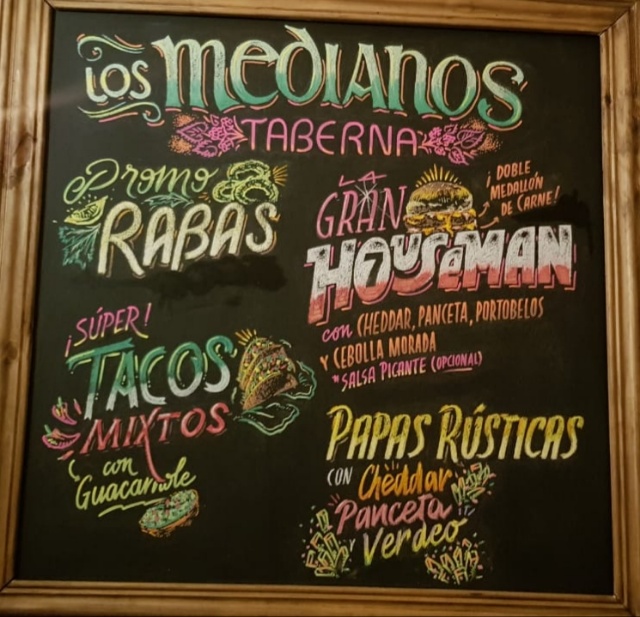 LOS MEDIANOS
TABERNA
Promo
RABAS
¡SÚPER!
TACOS
MIXTOS
con
Guacamole
LA
GRAN
HOUSEMAN
7
¡DOBLE
MEDALLÓN
DE CARNE!
con CHEDDAR, PANCETA, PORTOBELOS
Y CEBOLLA MORADA
*SALSA PICANTE (OPCIONAL)
PAPAS RÚSTICAS
CON Cheddar
Panceta
Y Verdeo